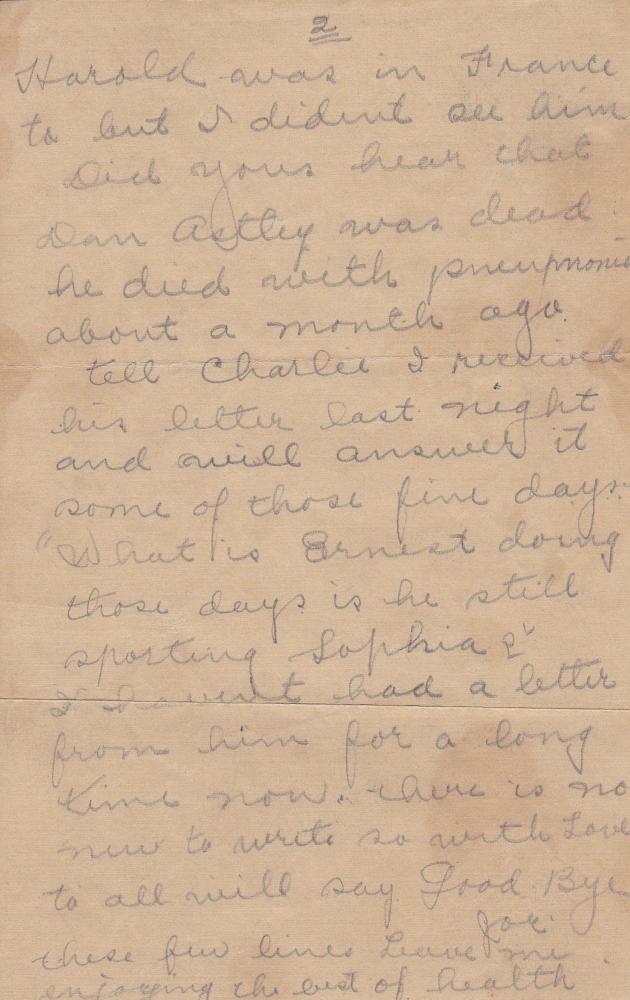 2
Harold was in France
to but I dident see him
Did yous hear that
Dan Astley was dead
he died with pneupmonia
about a month ago.
tell Charlie I received
his letter last night
and will answer it
some of those fine days.
"What is Ernest doing
those days is he still
sporting Sophia?"
I havent had a letter
from him for a long
time now. there is no
new to write so with Love
to all will say Good Bye
for.
these few lines Leave me
enjoying the best of health